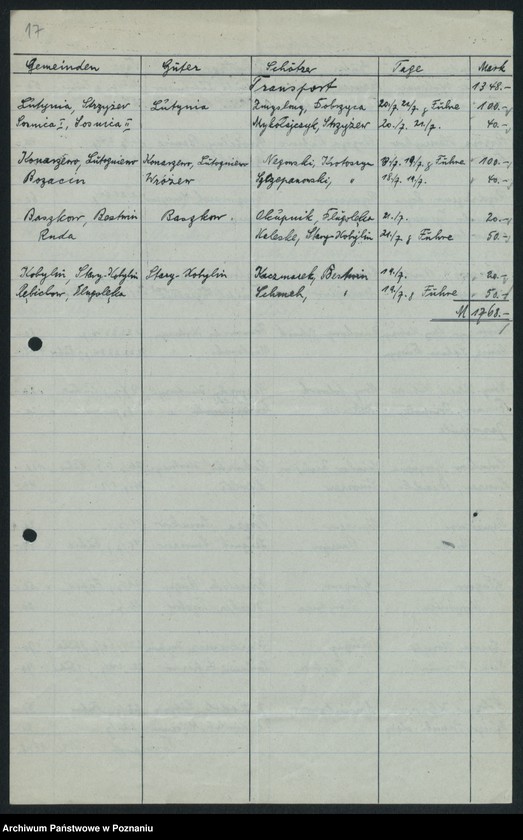 17
Gemeinden Güter Schätzer Tage Mark
Transport 1348.-
Lutynia, Strzyżew Lutynia Dobrzyca 20./7. 21./7. Fuhre 100.-
Sosnica I, Sosnica II Mykołajczyk, Strzyżew 20./7. 21./7. 40.-
Konarzewo, Lutogniew Konarzewo, Lutogniew Krotoschin 18./7. 19./7. Fuhre 100.-
Bozacin Wróżew Szczepanowski, " 18./7. 19./7. 40.-
Baszkow, Bestwin Baszkow. Okupnik, Długolęka 21./7. 20.-
Ruda Kaleske, Stary-Kobylin 21./7. Fuhre 50.-
Kobylin, Stary-Kobylin Stary-Kobylin Kaczmarek, Bestwin 19./7. 20.-
Rębiechow, Długolęka " 19./7. Fuhre 50.-
M 1768.-
Archiwum Państwowe w Poznaniu